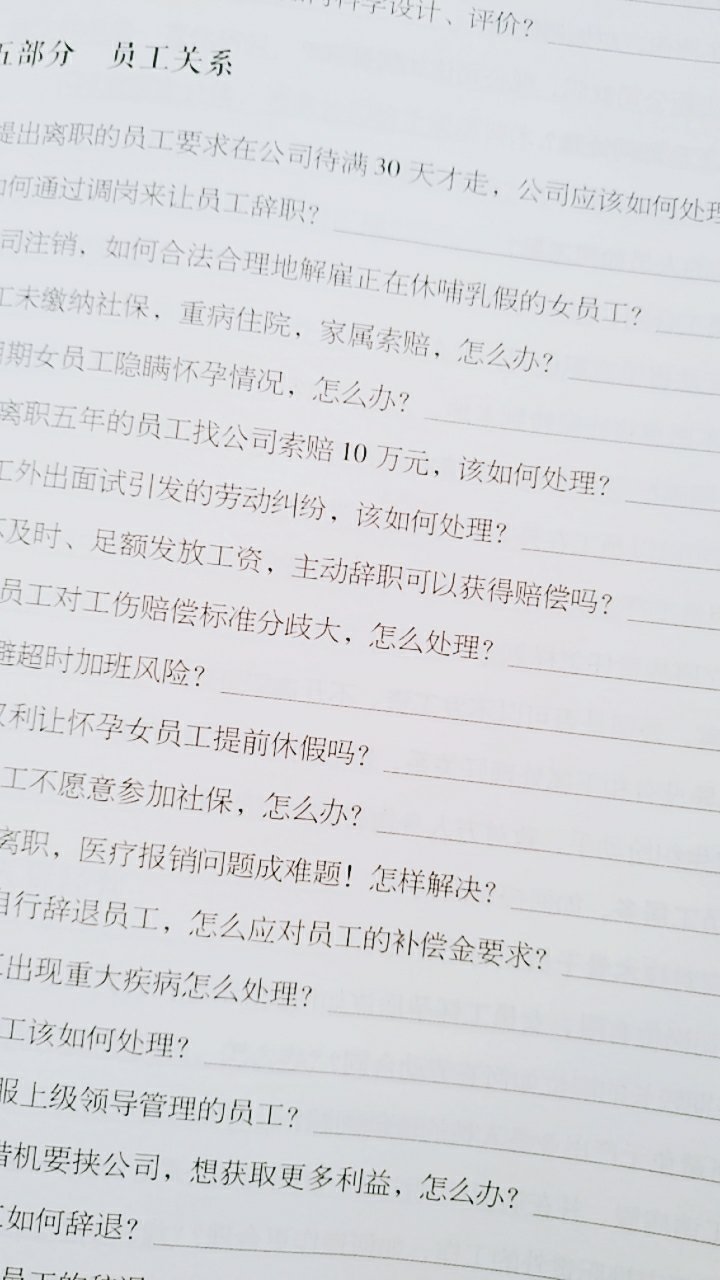 科学设计、评价？
五部分 员工关系
提出离职的员工要求在公司待满 30 天才走，公司应该如何处理
如何通过调岗来让员工辞职？
司注销，如何合法合理地解雇正在休哺乳假的女员工？
工未缴纳社保，重病住院，家属索赔，怎么办？
用期女员工隐瞒怀孕情况，怎么办？
离职五年的员工找公司索赔 10 万元，该如何处理？
工外出面试引发的劳动纠纷，该如何处理？
不及时、足额发放工资，主动辞职可以获得赔偿吗？
员工对工伤赔偿标准分歧大，怎么处理？
避超时加班风险？
权利让怀孕女员工提前休假吗？
工不愿意参加社保，怎么办？
离职，医疗报销问题成难题！怎样解决？
自行辞退员工，怎么应对员工的补偿金要求？
工出现重大疾病怎么处理？
工该如何处理？
服上级领导管理的员工？
借机要挟公司，想获取更多利益，怎么办？
如何辞退？